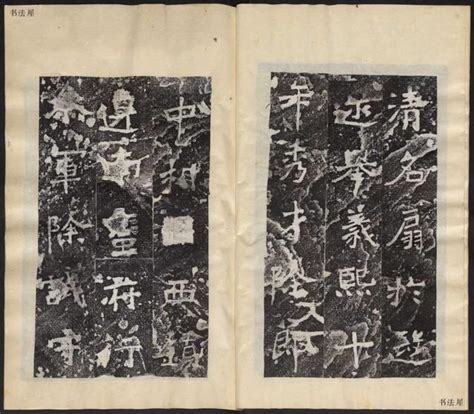 书法屋
清名扇於遐
迩舉義熙十
年秀才除郎
中相西鎮
遷南蠻府行
參軍除試守
书法屋